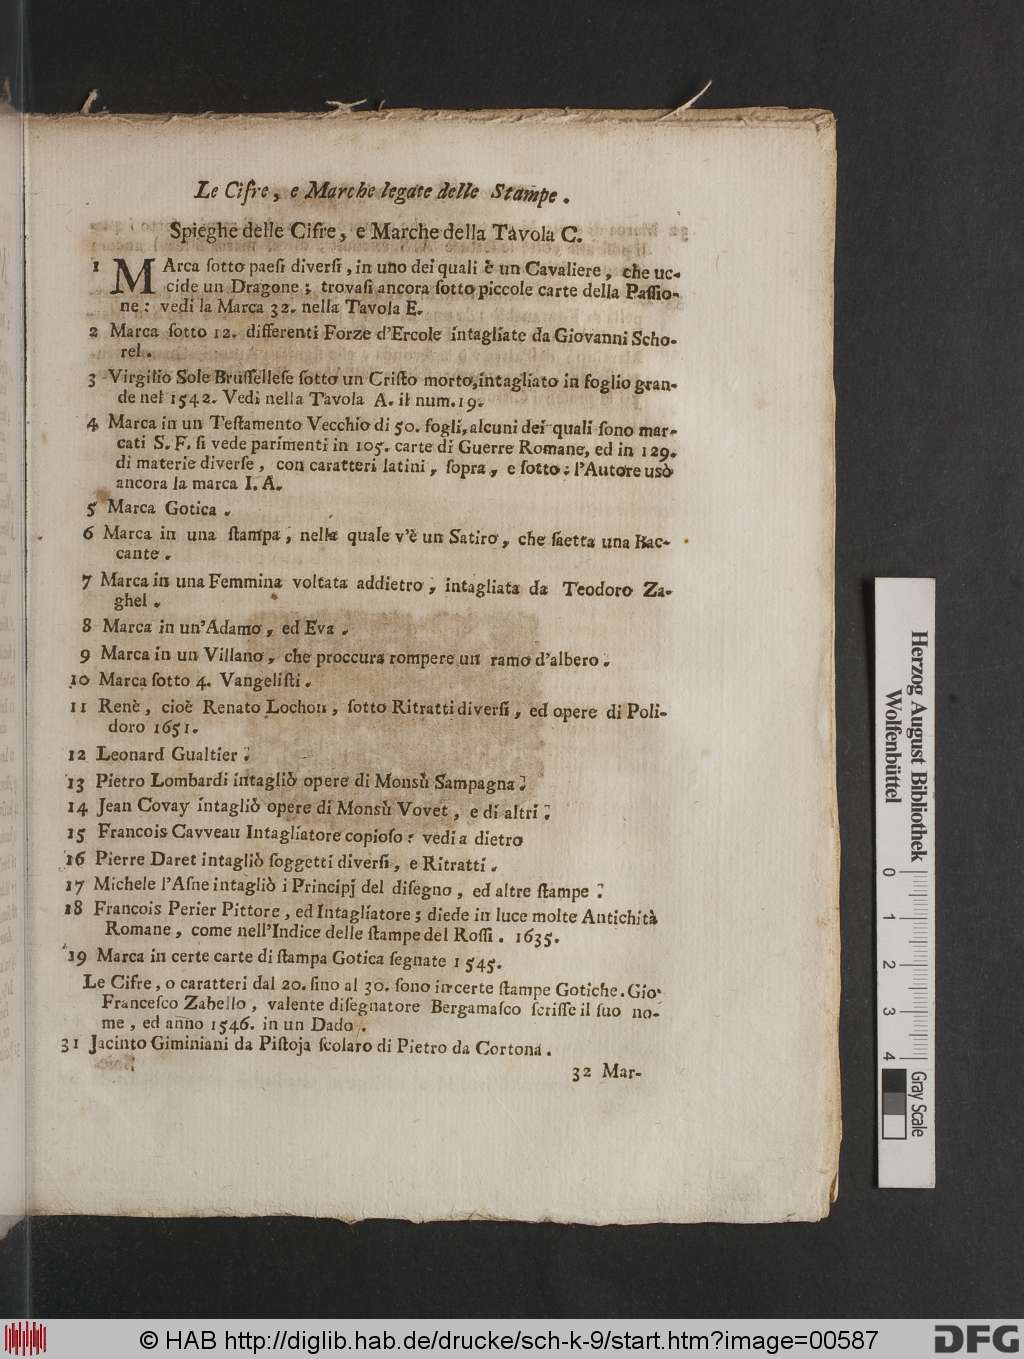 Le Cifre, e Marche legate delle Stampe.
Spieghe delle Cifre, e Marche della Tavola C.
1 MArca ſotto paeſi diverſi, in uno dei quali è un Cavaliere, che uc-
cide un Dragone; trovaſi ancora ſotto piccole carte della Paſſio-
ne: vedi la Marca 32. nella Tavola E.
2 Marca ſotto 12. differenti Forze d'Ercole intagliate da Giovanni Scho-
rel.
3 Virgilio Sole Bruſſelleſe ſotto un Criſto morto, intagliato in foglio gran-
de nel 1542. Vedi nella Tavola A. il num. 19.
4 Marca in un Teſtamento Vecchio di 50. fogli, alcuni dei quali ſono mar-
cati S. F. ſi vede parimenti in 105. carte di Guerre Romane, ed in 129.
di materie diverſe, con caratteri latini, ſopra, e ſotto; l'Autore usò
ancora la marca I. A.
5 Marca Gotica.
6 Marca in una ſtampa, nella quale v'è un Satiro, che ſaetta una Bac-
cante.
7 Marca in una Femmina voltata addietro, intagliata da Teodoro Za-
ghel.
8 Marca in un'Adamo, ed Eva.
9 Marca in un Villano, che proccura rompere un ramo d'albero.
10 Marca ſotto 4. Vangeliſti.
11 Renè, cioè Renato Lochon, ſotto Ritratti diverſi, ed opere di Poli-
doro 1651.
12 Leonard Gualtier.
13 Pietro Lombardi intagliò opere di Monsù Sampagna.
14 Jean Covay intagliò opere di Monsù Vovet, e di altri.
15 Francois Cavveau Intagliatore copioſo: vedi a dietro
16 Pierre Daret intagliò ſoggetti diverſi, e Ritratti.
17 Michele l'Aſne intagliò i Principj del diſegno, ed altre ſtampe.
18 Francois Perier Pittore, ed Intagliatore; diede in luce molte Antichità
Romane, come nell'Indice delle ſtampe del Roſſi. 1635.
19 Marca in certe carte di ſtampa Gotica ſegnate 1545.
Le Cifre, o caratteri dal 20. ſino al 30. ſono in certe ſtampe Gotiche. Gio.
Franceſco Zabello, valente diſegnatore Bergamaſco ſcriſſe il ſuo no-
me, ed anno 1546. in un Dado.
31 Jacinto Giminiani da Piſtoja ſcolaro di Pietro da Cortona.
32 Mar-
Herzog August Bibliothek
Wolfenbüttel
0 1 2 3 4
Gray Scale
© HAB http://diglib.hab.de/drucke/sch-k-9/start.htm?image=00587
DFG